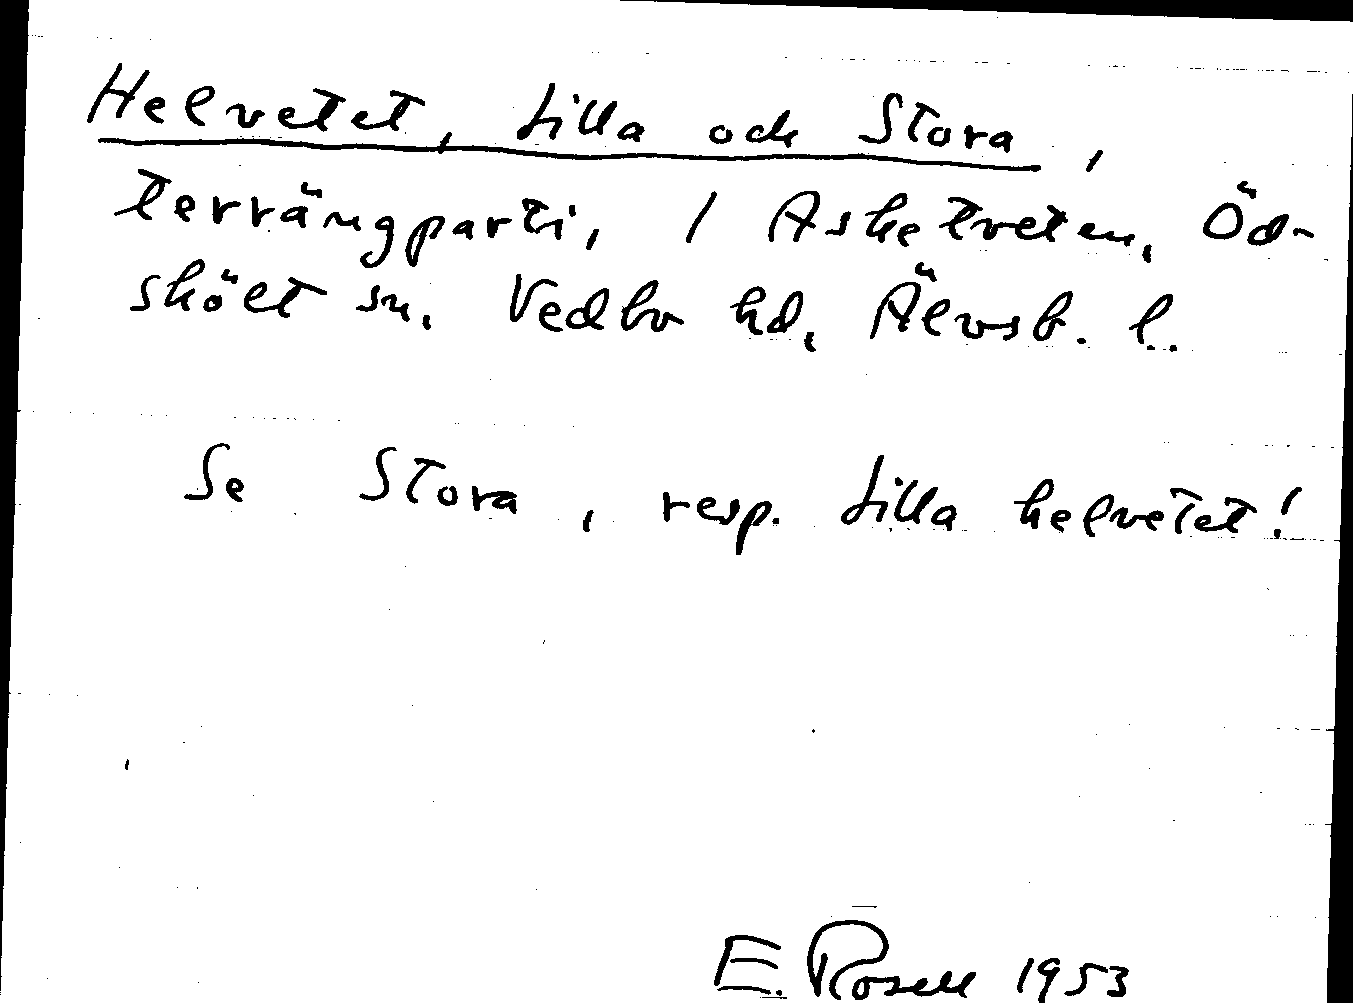 Helvetet, Lilla och Stora,
terrängparti, / Askelveten, Öd-
skölt sn. Vedbo hd, Älvsb. l.
Se Stora, resp. Lilla helvetet!
E. Rosell 1953